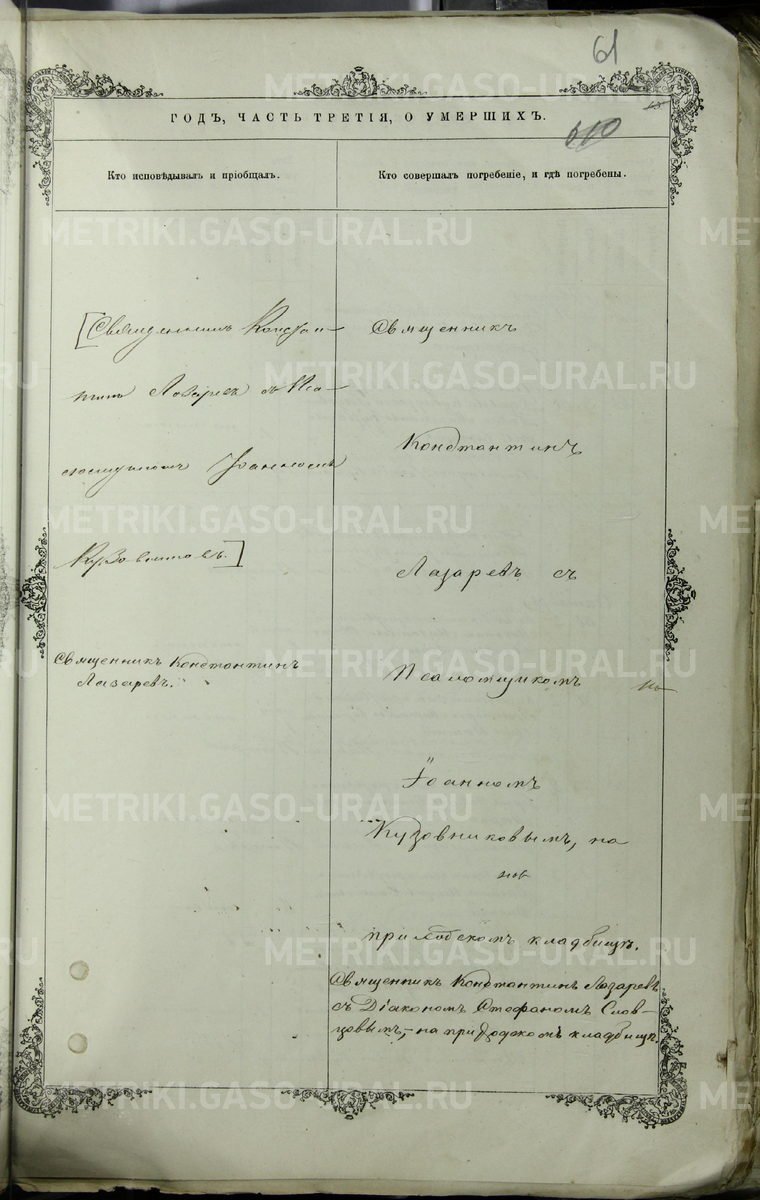 61
510
ГОДЪ, ЧАСТЬ ТРЕТІЯ, О УМЕРШИХЪ.
Кто исповѣдывалъ и пріобщалъ.
Кто совершалъ погребеніе, и гдѣ погребены.
[Священникъ Констан-
тинъ Лазаревъ съ Пса-
ломщикомъ Іоанномъ
Кузовниковъ.]
Священникъ Константинъ
Лазаревъ.
Священникъ
Константинъ
Лазаревъ съ
Псаломщикомъ
Іоанномъ
Кузовниковымъ, на
приходскомъ кладбищѣ.
Священникъ Константинъ Лазаревъ
съ Діакономъ Стефаномъ Слов-
цовымъ, на приходскомъ кладбищѣ.
METRIKI.GASO-URAL.RU